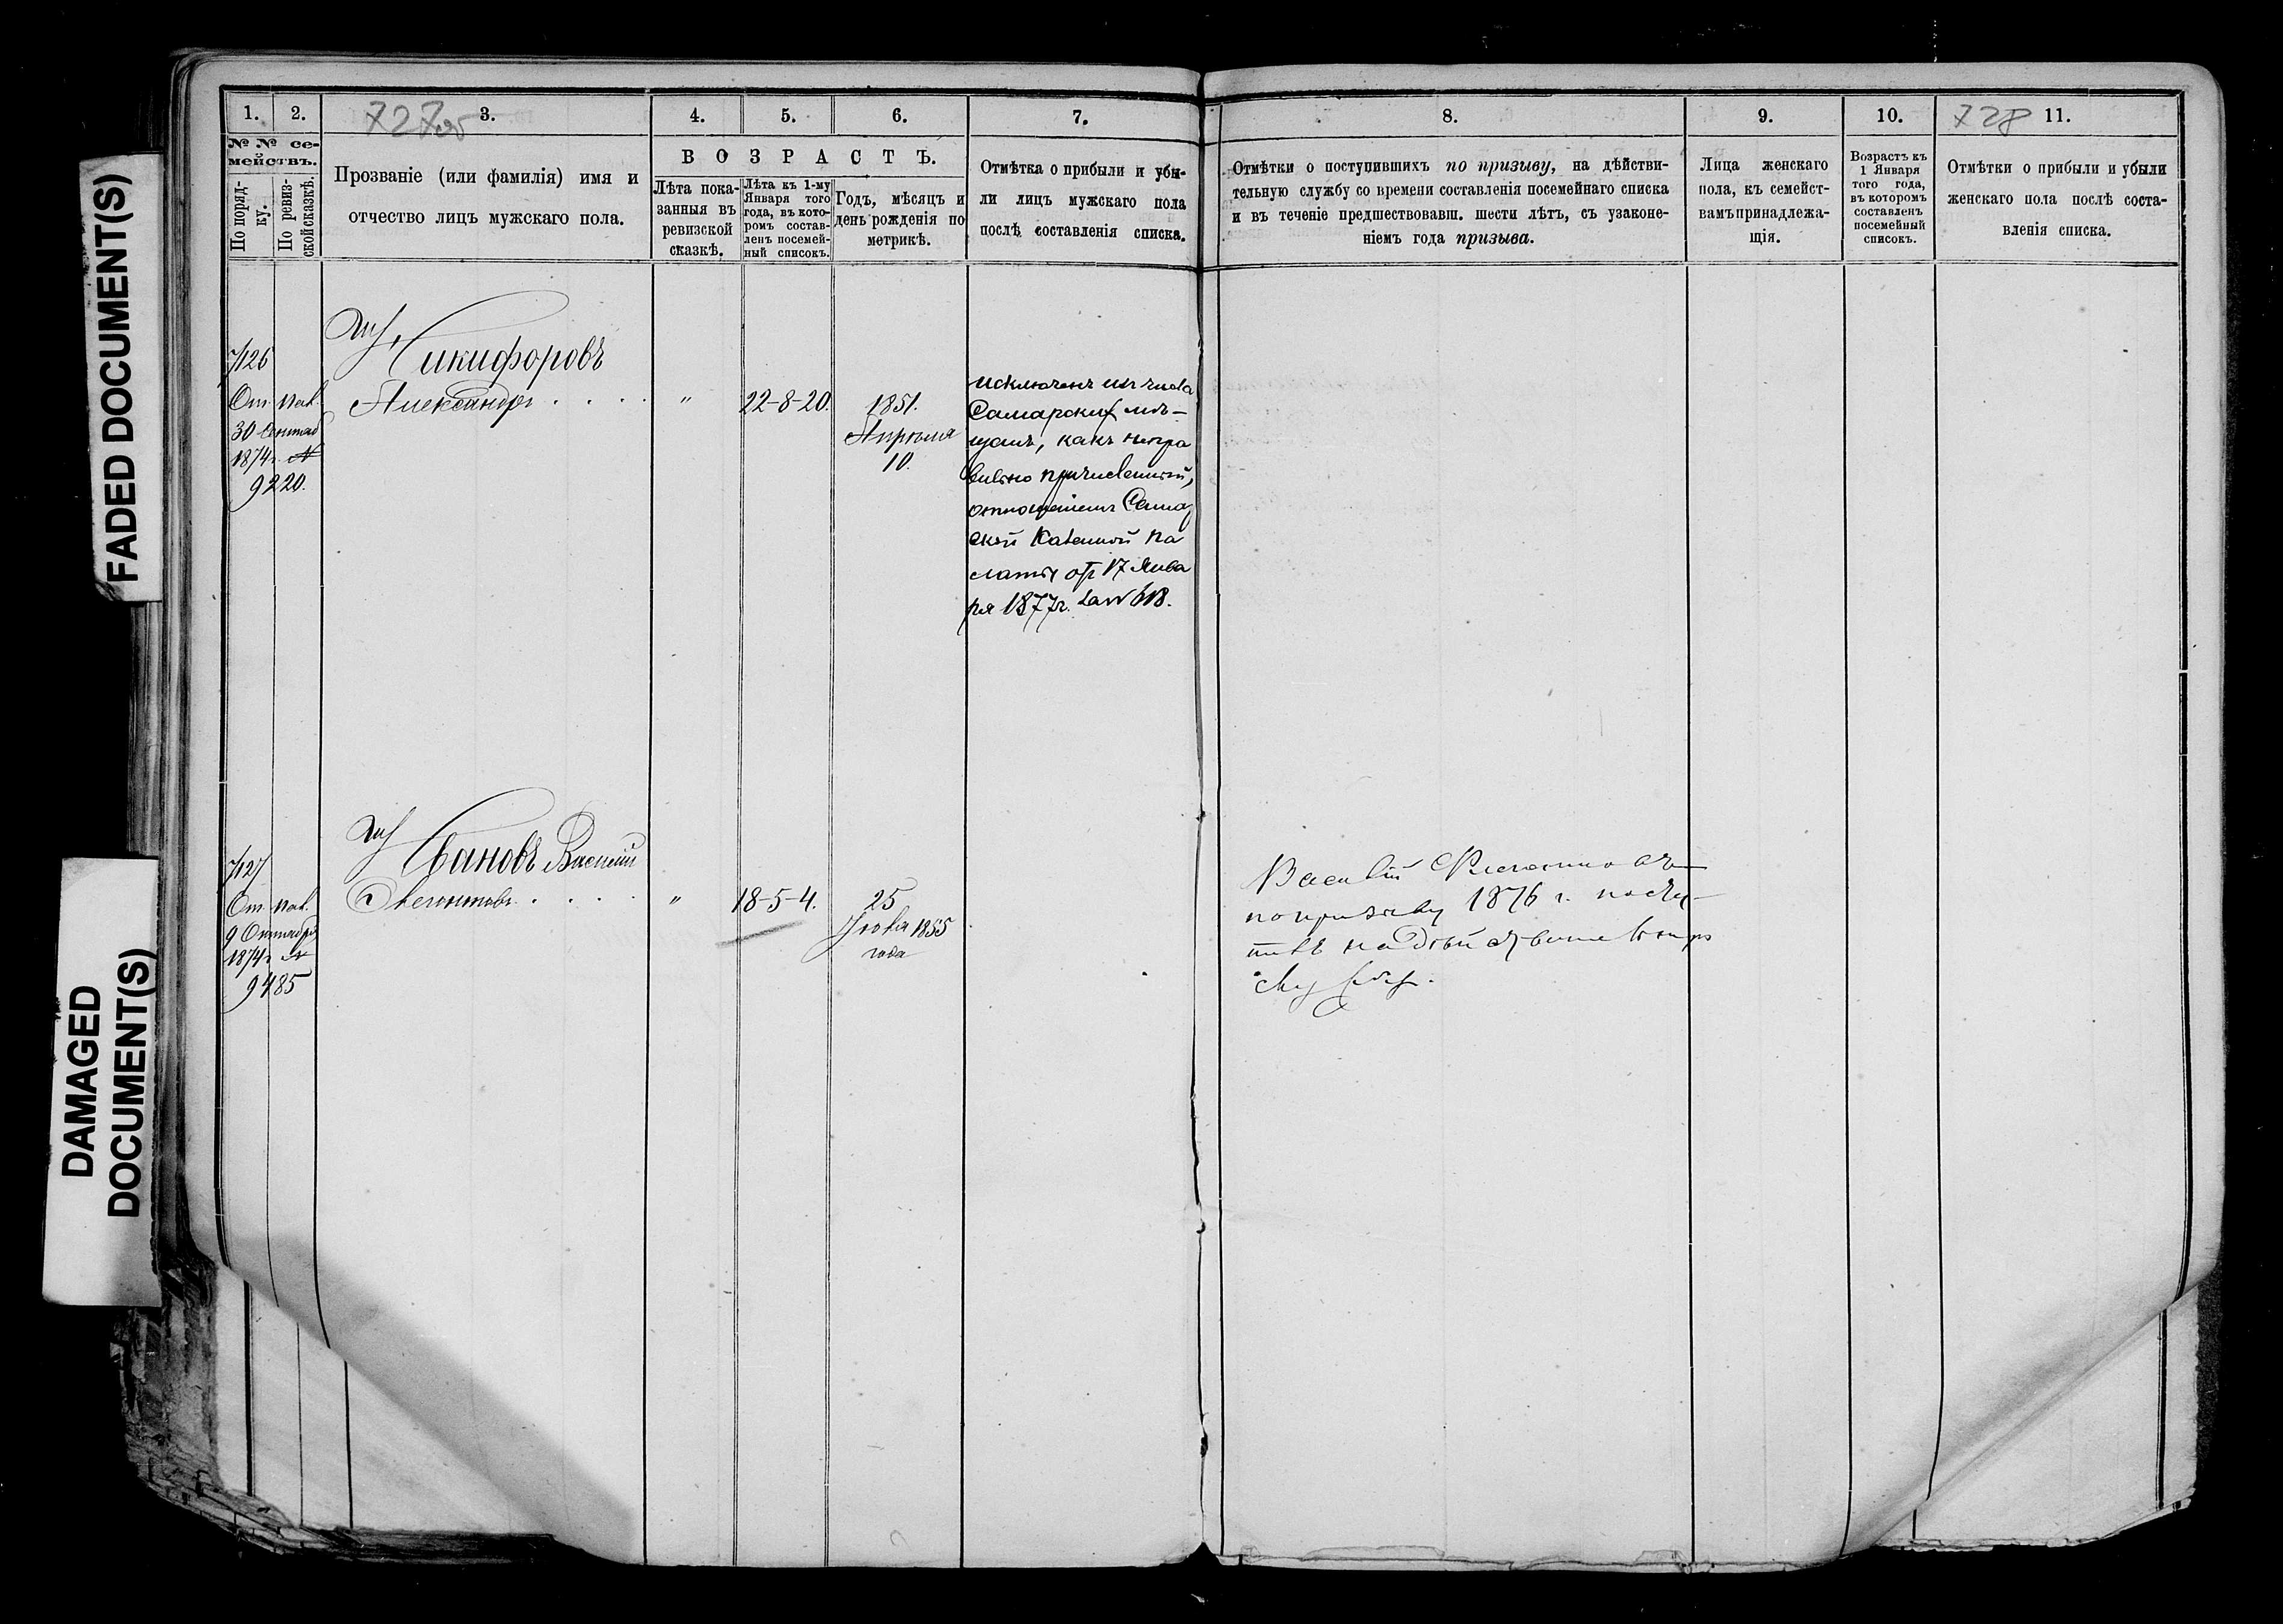 FADED DOCUMENT(S)
DAMAGED
DOCUMENT(S)
1.
2.
3.
4.
5.
6.
7.
727
№ № се-
мействъ.
По поряд-
ку.
По ревиз-
ской сказкѣ.
Прозваніе (или фамилія) имя и
отчество лицъ мужскаго пола.
ВОЗРАСТЪ.
Лѣта пока-
занныя въ
ревизской
сказкѣ.
Лѣта къ 1-му
Января того
года, въ кото-
ромъ состав-
ленъ посемей-
ный списокъ.
Годъ, мѣсяцъ и
день рожденія по
метрикѣ.
Отмѣтка о прибыли и убы-
ли лицъ мужскаго пола
послѣ составленія списка.
7126
От. пал.
30 Сентяб
1874 г. №
9220.
Никифоровъ
Александръ . . . .
"
22-8-20.
1851.
Апрѣля
10.
исключенъ изъ числа
Самарскихъ мѣ-
щанъ, какъ непра
вильно причисленный,
отношеніемъ Самар
ской Казенной Па
латы отъ 17 Янва
ря 1877 г. за № 618.
7127
От. пал.
9 Октября
1874 г. №
9485
Ивановъ Василій
. . . .
"
18-5-4.
25
1855
года
8.
9.
10.
728
11.
Отмѣтки о поступившихъ по призыву, на дѣйстви-
тельную службу со времени составленія посемейнаго списка
и въ теченіе предшествовавш. шести лѣтъ, съ узаконе-
ніемъ года призыва.
Лица женскаго
пола, къ семейст-
вамъ принадлежа-
щія.
Возрастъ къ
1 Января
того года,
въ которомъ
составленъ
посемейный
списокъ.
Отмѣтки о прибыли и убыли
женскаго пола послѣ соста-
вленія списка.
Василій
по призыву 1876 г. посту-